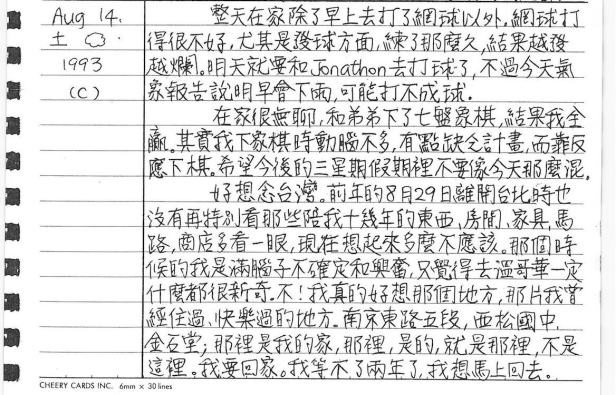 Aug 14.
土
1993
(C)
整天在家除了早上去打了網球以外,網球打
得很不好,尤其是發球方面,練了那麼久,結果越發
越爛。明天就要和Jonathon去打球了,不過今天氣
象報告說明早會下雨,可能打不成球.
在家很無聊,和弟弟下了七盤象棋,結果我全
贏。其實我下象棋時動腦不多,有點缺乏計畫,而靠反
應下棋。希望今後的三星期假期裡不要像今天那麼混。
好想念台灣。前年的8月29日離開台北時也
沒有再特別看那些陪我十幾年的東西,房間,家具,馬
路,商店多看一眼,現在想起來多麼不應該。那個時
候的我是滿腦子不確定和興奮,只覺得去溫哥華一定
什麼都很新奇。不!我真的好想那個地方,那片我曾
經住過、快樂過的地方。南京東路五段,西松國中,
金石堂;那裡是我的家,那裡,是的,就是那裡,不是
這裡。我要回家。我等不了兩年了,我想馬上回去。
CHEERY CARDS INC. 6mm × 30 lines